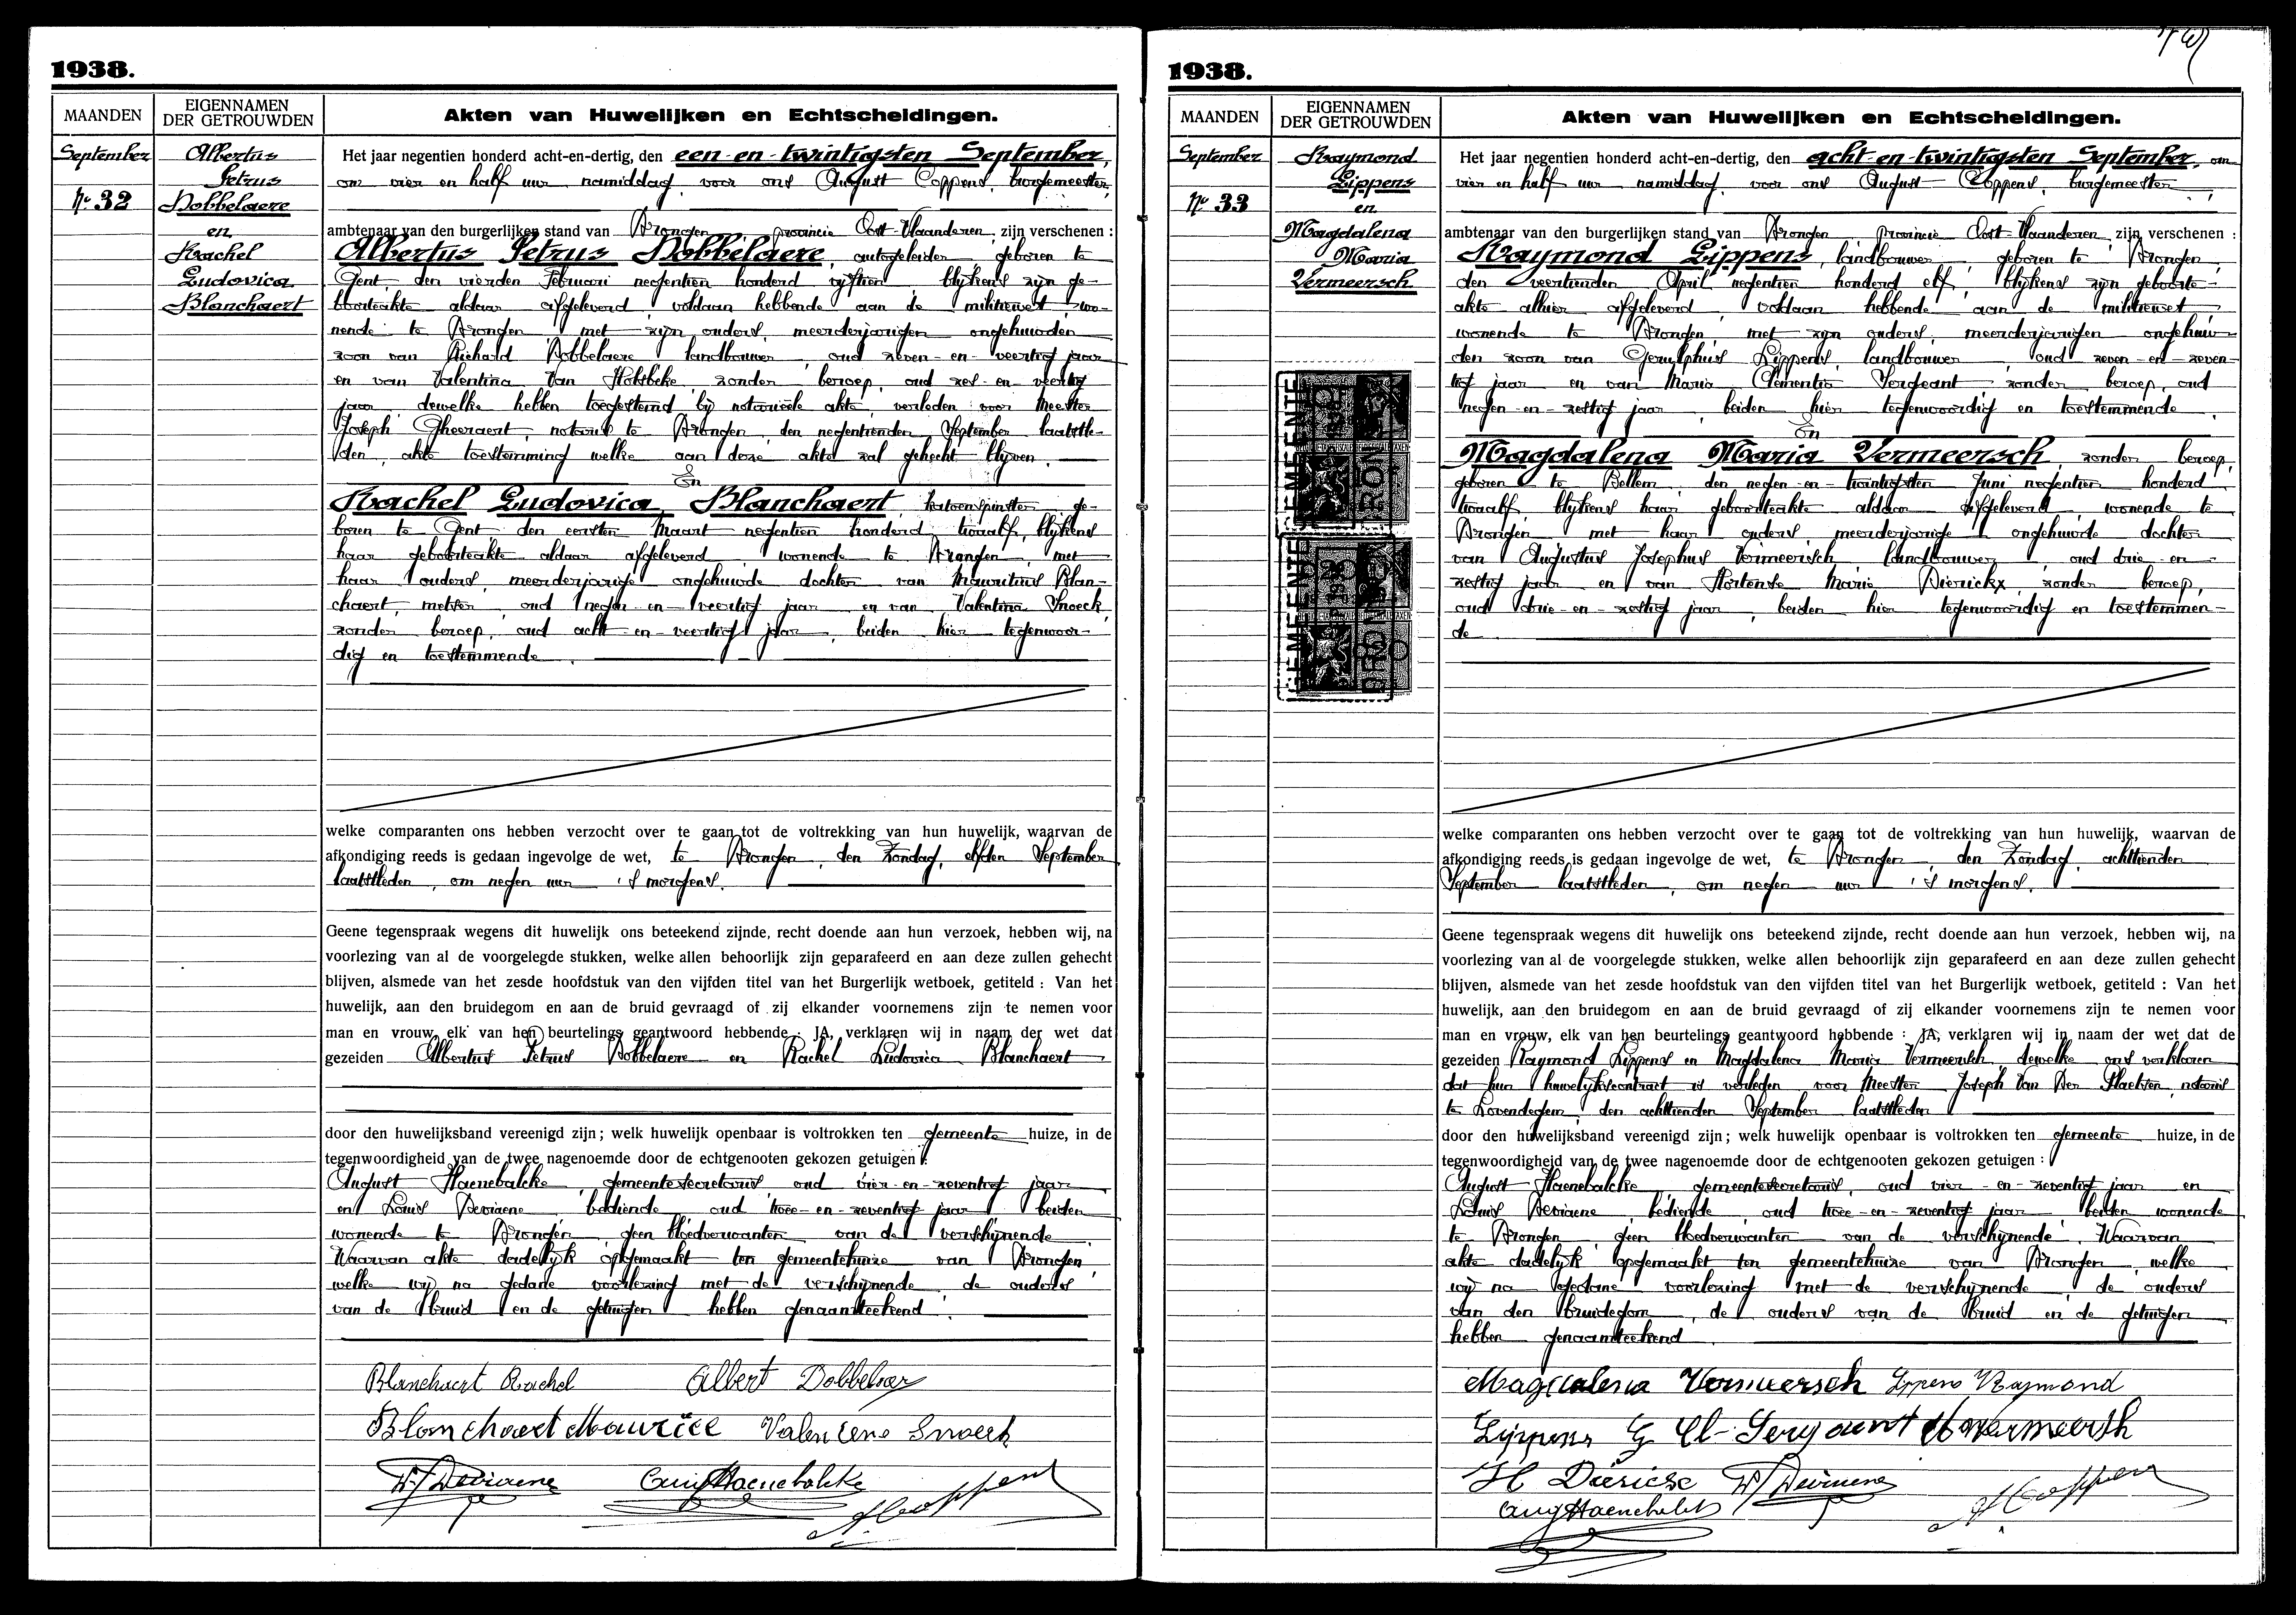 1938.
MAANDEN
EIGENNAMEN
DER GETROUWDEN
Akten van Huwelijken en Echtscheidingen.
September
No 32
Albertus
Petrus
Dobbelaere
en
Rachel
Ludovica
Blanchaert
Het jaar negentien honderd acht-en-dertig, den een-en-twintigsten September,
om vier en half uur namiddag, voor ons August Coppens, burgemeester,
ambtenaar van den burgerlijken stand van Drongen, provincie Oost-Vlaanderen, zijn verschenen :
Albertus Petrus Dobbelaere, autogeleider, geboren te
Gent, den vierden Februari negentien honderd vijftien, blijkens zijn ge-
boorteakte aldaar afgeleverd, voldaan hebbende aan de militiewet, wo-
nende te Drongen, met zijn ouders, meerderjarigen ongehuwden
zoon van Richard Dobbelaere, landbouwer, oud zeven-en-veertig jaar
en van Valentina Van Holsbeke, zonder beroep, oud zes-en-veertig
jaar, dewelke hebben toegestemd bij notarieële akte, verleden voor Meester
Joseph Gheeraert, notaris te Drongen, den negentienden September laatstle-
den, akte toestemming welke aan deze akte zal gehecht blijven.
En
Rachel Ludovica Blanchaert, katoenspinster, ge-
boren te Gent, den eersten Maart negentien honderd twaalf, blijkens
haar geboorteakte aldaar afgeleverd, wonende te Drongen, met
haar ouders, meerderjarige ongehuwde dochter van Mauritius Blan-
chaert, metser, oud negen-en-veertig jaar en van Valentina Snoeck
zonder beroep, oud acht-en-veertig jaar, beiden hier tegenwoor-
dig en toestemmende.
welke comparanten ons hebben verzocht over te gaan tot de voltrekking van hun huwelijk, waarvan de
afkondiging reeds is gedaan ingevolge de wet, te Drongen, den Zondag, elfden September
laatstleden, om negen uur 's morgens.
Geene tegenspraak wegens dit huwelijk ons beteekend zijnde, recht doende aan hun verzoek, hebben wij, na
voorlezing van al de voorgelegde stukken, welke allen behoorlijk zijn geparafeerd en aan deze zullen gehecht
blijven, alsmede van het zesde hoofdstuk van den vijfden titel van het Burgerlijk wetboek, getiteld : Van het
huwelijk, aan den bruidegom en aan de bruid gevraagd of zij elkander voornemens zijn te nemen voor
man en vrouw, elk van hen beurtelings geantwoord hebbende : JA, verklaren wij in naam der wet dat
gezeiden Albertus Petrus Dobbelaere en Rachel Ludovica Blanchaert
door den huwelijksband vereenigd zijn; welk huwelijk openbaar is voltrokken ten gemeente huize, in de
tegenwoordigheid van de twee nagenoemde door de echtgenooten gekozen getuigen :
August Haenebalcke, gemeentesecretaris, oud vier-en-zeventig jaar
en Louis Deviaene, bediende, oud twee-en-zeventig jaar, beiden
wonende te Drongen, geen bloedverwanten van de verschijnende.
Waarvan akte dadelijk opgemaakt ten gemeentehuize van Drongen,
welke wij na gedane voorlezing met de verschijnende, de ouders
van de bruid en de getuigen hebben genaamteekend.
Blanchaert Rachel Albert Dobbelaere
Blanchaert Maurice Valentine Snoeck
Deviaene Aug Haenebalcke A Coppens
1938.
MAANDEN
EIGENNAMEN
DER GETROUWDEN
Akten van Huwelijken en Echtscheidingen.
September
No 33
Raymond
Lippens
en
Magdalena
Maria
Vermeersch
GEMEENTE
DRONGEN
GEMEENTE
DRONGEN
Het jaar negentien honderd acht-en-dertig, den acht-en-twintigsten September, om
vier en half uur namiddag, voor ons August Coppens, burgemeester,
ambtenaar van den burgerlijken stand van Drongen, provincie Oost-Vlaanderen, zijn verschenen :
Raymond Lippens, landbouwer, geboren te Drongen,
den veertienden April negentien honderd elf, blijkens zijn geboorte-
akte alhier afgeleverd, voldaan hebbende aan de militiewet,
wonende te Drongen, met zijn ouders, meerderjarigen ongehuw-
den zoon van Gerulphus Lippens, landbouwer, oud zeven-en-zeven-
tig jaar en van Maria Clementia Sergeant, zonder beroep, oud
negen-en-zestig jaar, beiden hier tegenwoordig en toestemmende.
En
Magdalena Maria Vermeersch, zonder beroep,
geboren te Bellem, den negen-en-twintigsten Juni negentien honderd
twaalf, blijkens haar geboorteakte aldaar afgeleverd, wonende te
Drongen, met haar ouders, meerderjarige ongehuwde dochter
van Augustus Josephus Vermeersch, landbouwer, oud drie-en-
zestig jaar en van Hortense Marie Dierickx, zonder beroep,
oud drie-en-zestig jaar, beiden hier tegenwoordig en toestemmen-
de
welke comparanten ons hebben verzocht over te gaan tot de voltrekking van hun huwelijk, waarvan de
afkondiging reeds is gedaan ingevolge de wet, te Drongen, den Zondag, achttienden
September laatstleden, om negen uur 's morgens.
Geene tegenspraak wegens dit huwelijk ons beteekend zijnde, recht doende aan hun verzoek, hebben wij, na
voorlezing van al de voorgelegde stukken, welke allen behoorlijk zijn geparafeerd en aan deze zullen gehecht
blijven, alsmede van het zesde hoofdstuk van den vijfden titel van het Burgerlijk wetboek, getiteld : Van het
huwelijk, aan den bruidegom en aan de bruid gevraagd of zij elkander voornemens zijn te nemen voor
man en vrouw, elk van hen beurtelings geantwoord hebbende : JA, verklaren wij in naam der wet dat de
gezeiden Raymond Lippens en Magdalena Maria Vermeersch, dewelke ons verklaren
dat hun huwelijkscontract is verleden voor Meester Joseph Van Der Plaetsen, notaris
te Lovendegem, den achttienden September laatstleden
door den huwelijksband vereenigd zijn; welk huwelijk openbaar is voltrokken ten gemeente huize, in de
tegenwoordigheid van de twee nagenoemde door de echtgenooten gekozen getuigen :
August Haenebalcke, gemeentesecretaris, oud vier-en-zeventig jaar en
Louis Deviaene, bediende, oud twee-en-zeventig jaar, beiden wonende
te Drongen, geen bloedverwanten van de verschijnende. Waarvan
akte dadelijk opgemaakt ten gemeentehuize van Drongen, welke
wij na gedane voorlezing met de verschijnende, de ouders
van den bruidegom, de ouders van de bruid en de getuigen
hebben genaamteekend.
Magdalena Vermeersch Lippens Raymond
Lippens G Cl-Sergeant Vermeersch
H Diericx Deviaene
Aug Haenebalcke A Coppens